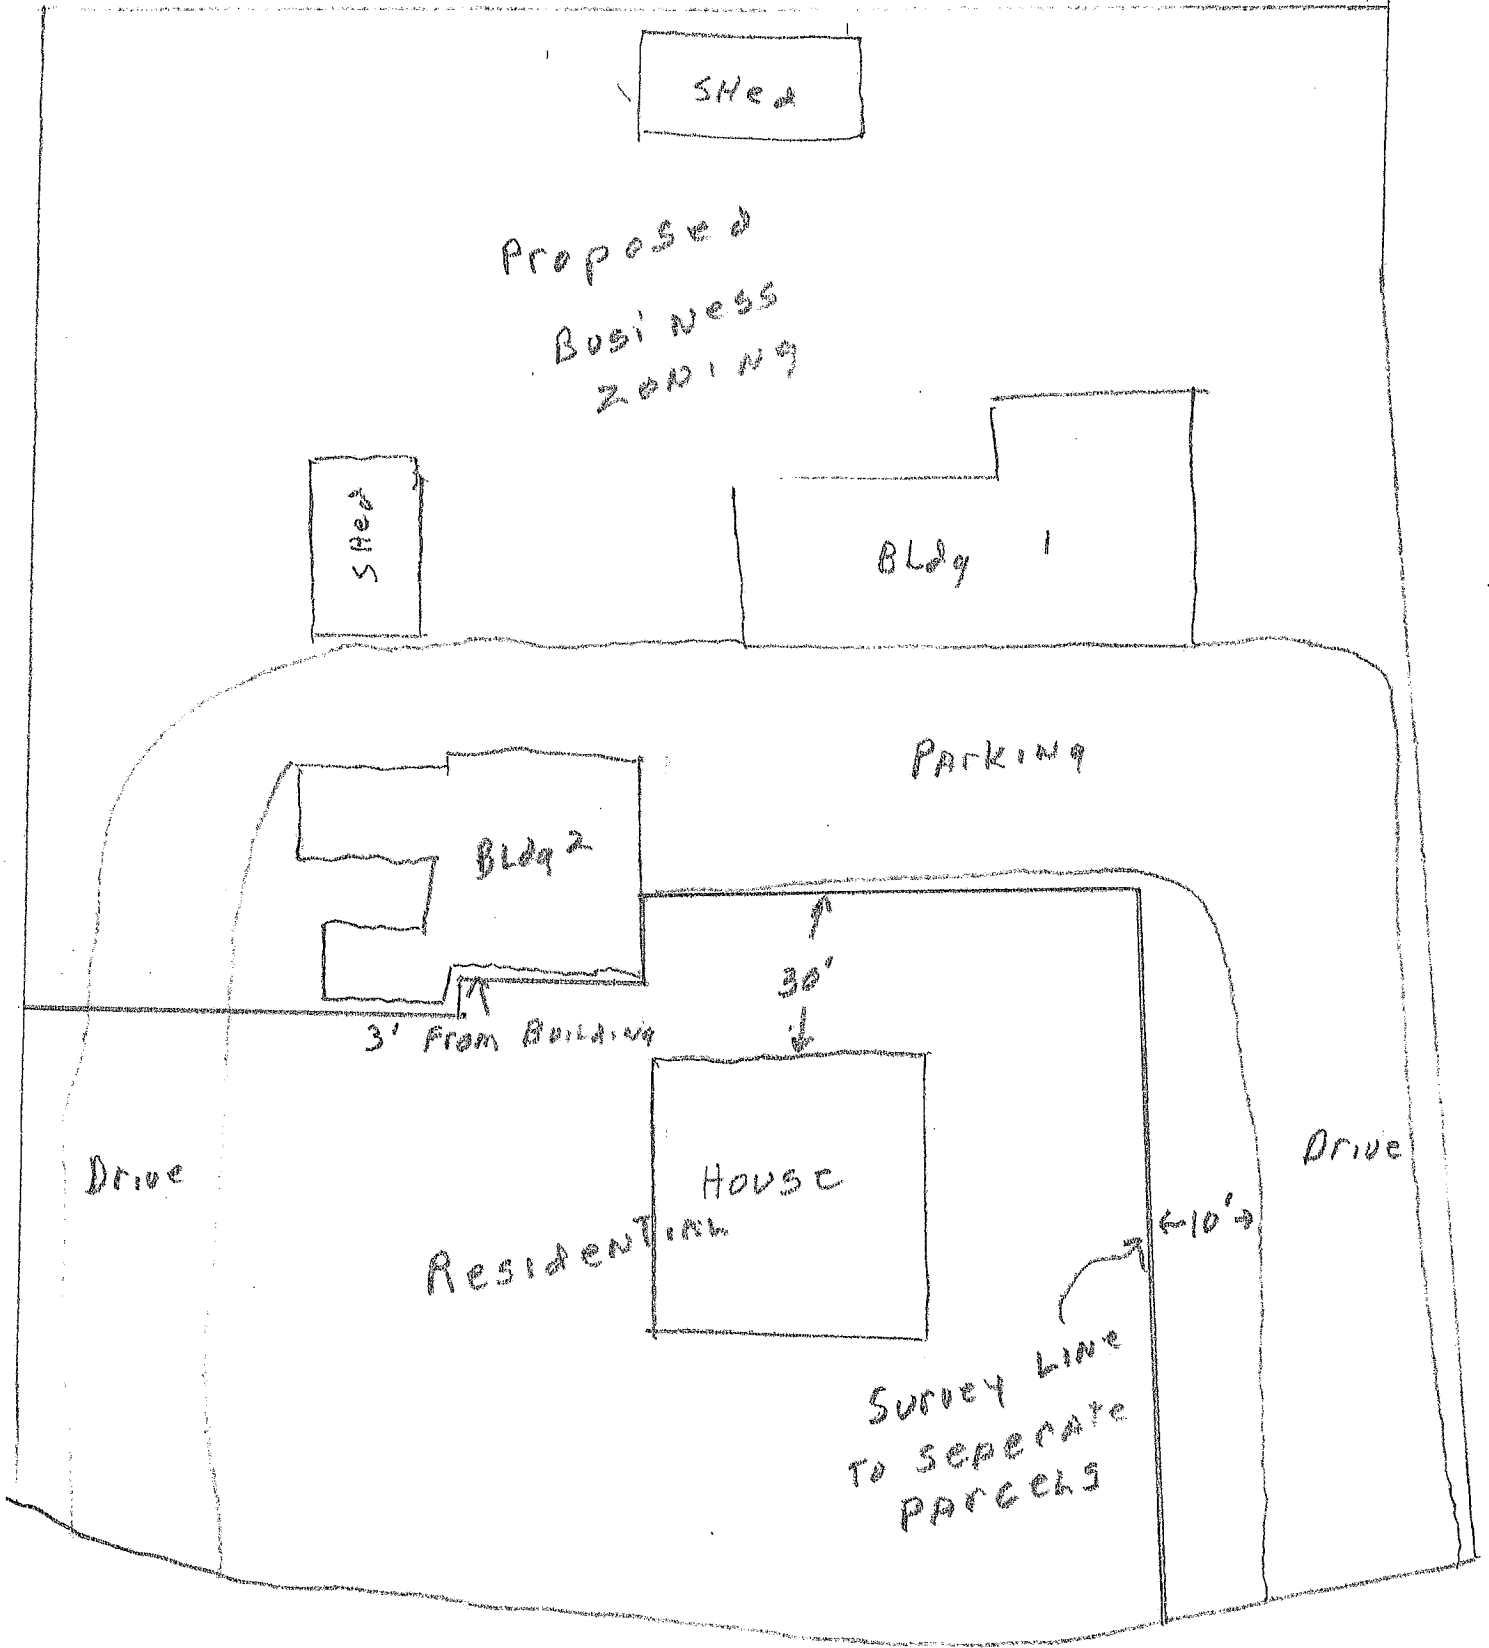 SHed
Proposed
BusiNess
ZoNiNg
SHed
BLdg 1
PArkiNg
BLdg 2
30'
3' From BuiLdiNg
Drive
House
Drive
ResideNTiAL
←10'→
Survey LiNe
To SeperATe
PArceLs